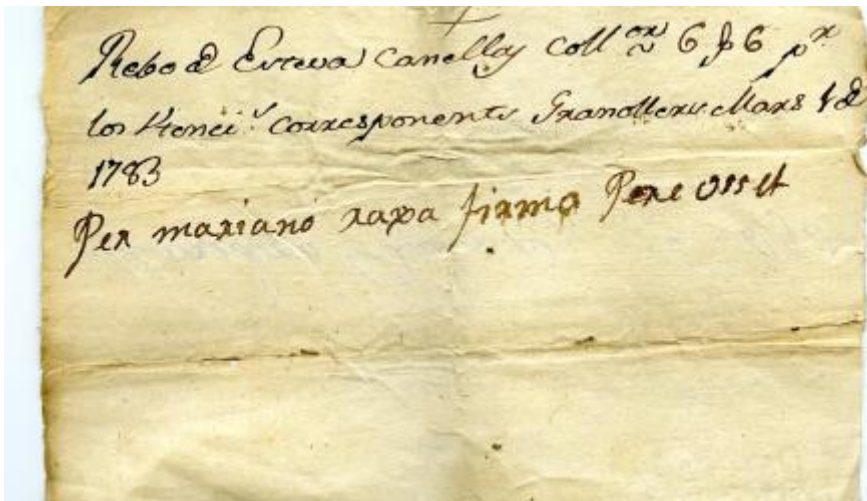 Rebo de Esteva Canellas Coll.or 6 # 6 pr
los corresponents Granollers Mars de
1783
Per mariano rapa firmo Pere Osset